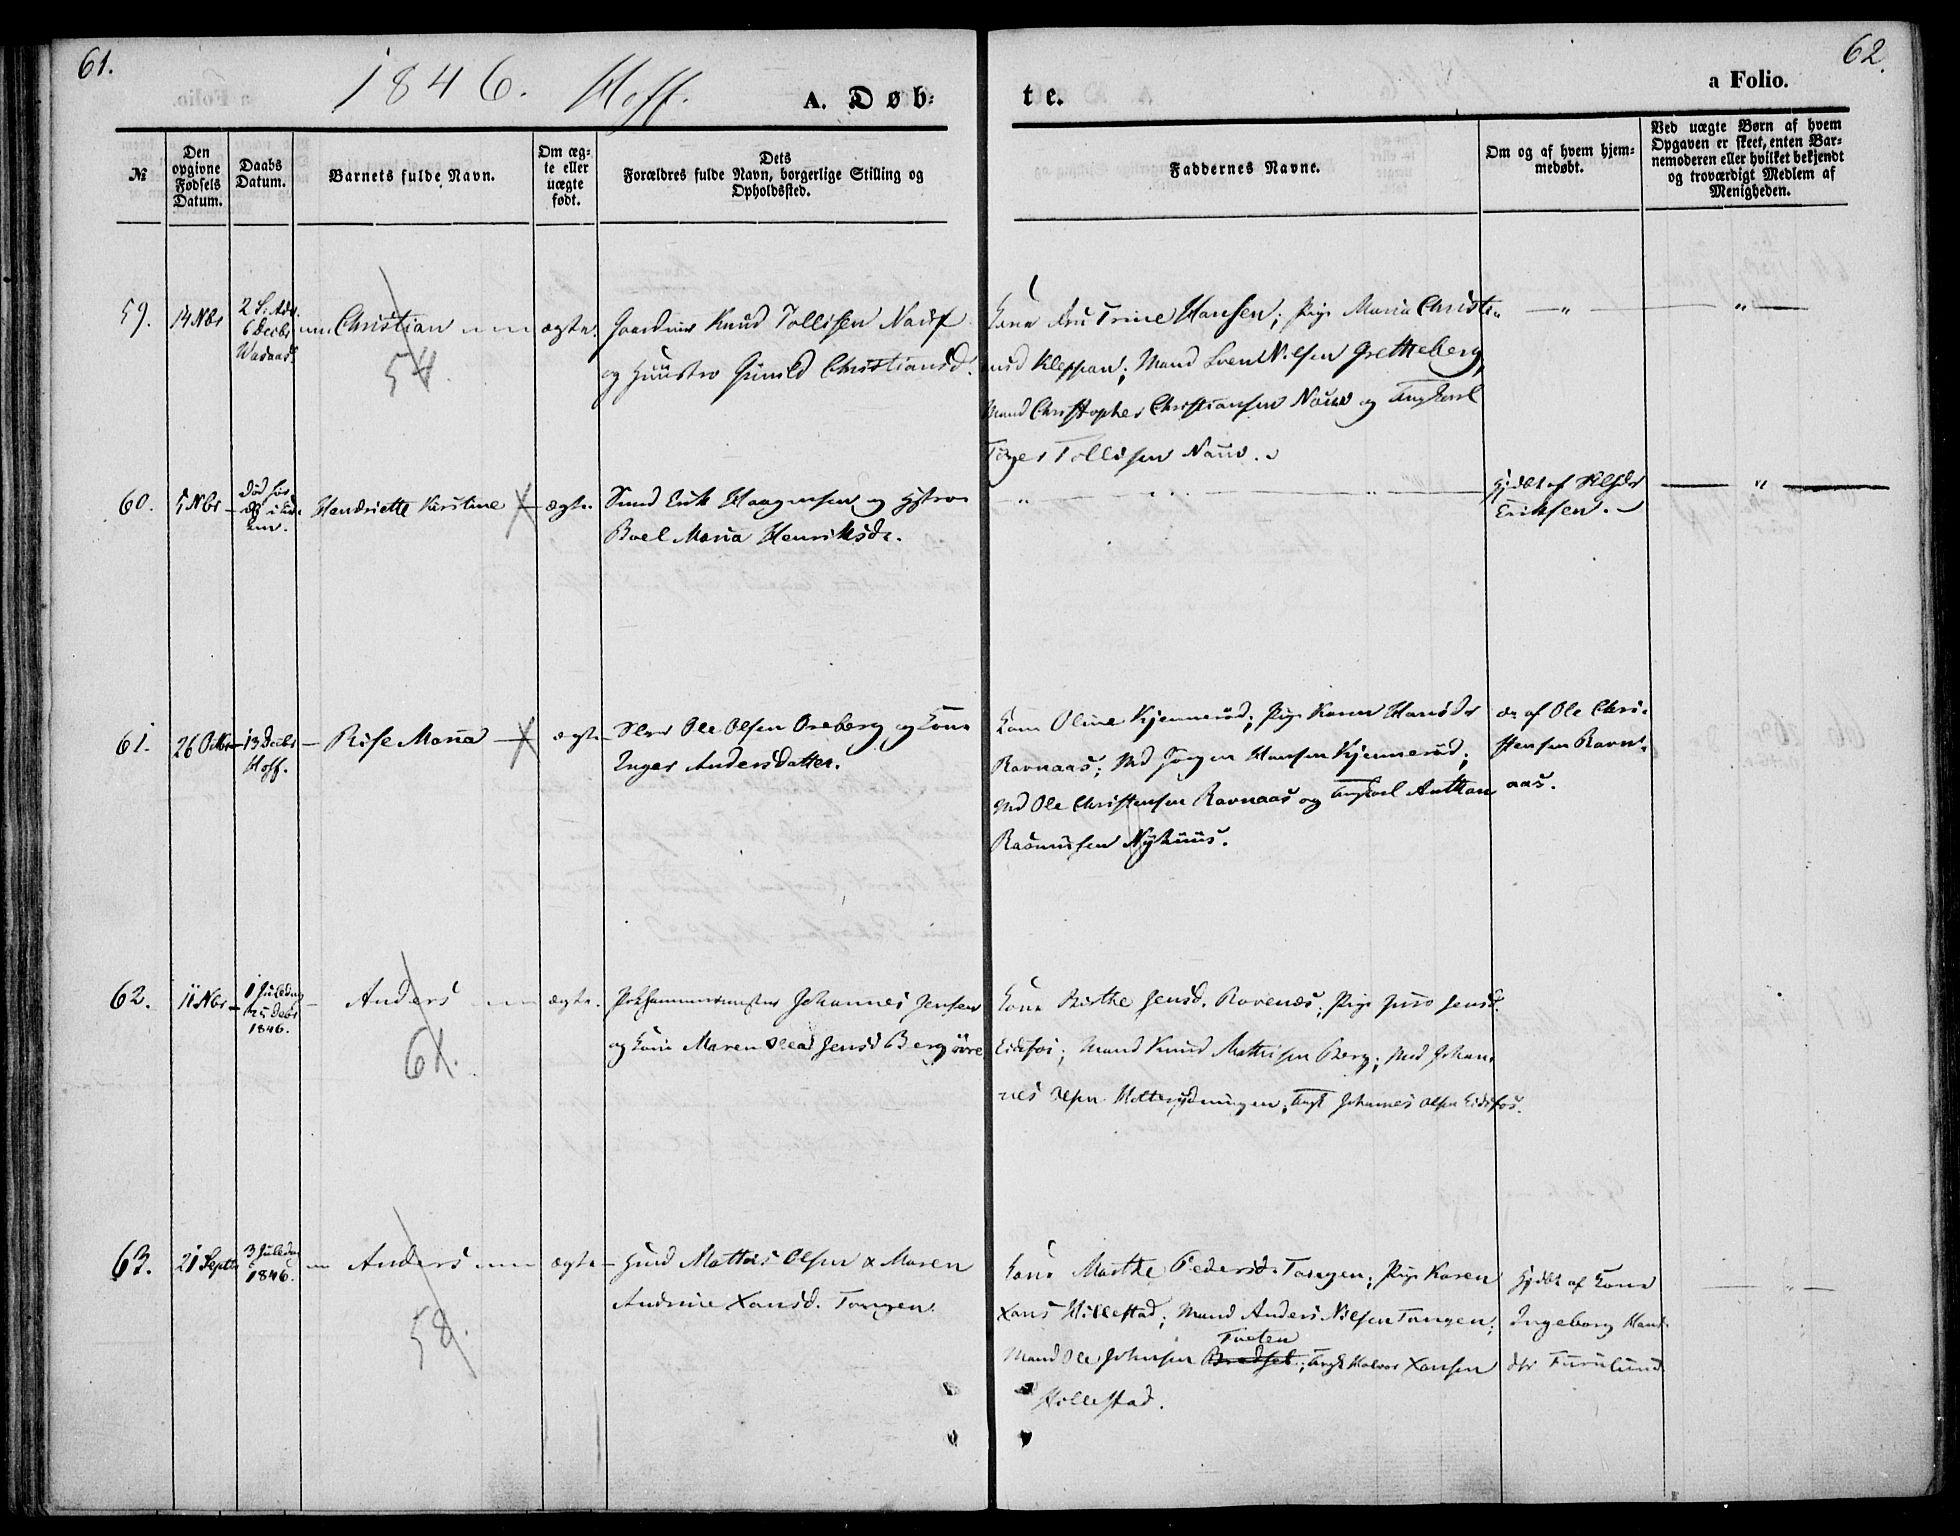 61.
1846. Hoff. A. Døb-
te.
a Folio.
62.
№
Den opgivne Fødsels Datum.
Daabs Datum.
Barnets fulde Navn.
Om ægte eller uægte født.
Dets Forældres fulde Navn, borgerlige Stilling og Opholdssted.
Faddernes Navne.
Om og af hvem hjemmedøbt.
Ved uægte Børn af hvem Opgaven er skeet, enten Barnemoderen eller hvilket bekjendt og troværdigt Medlem af Menigheden.
59. 14 Nbr 2 S. Adv. 6 Decbr Christian ægte. Knud Tollisen
og Huustro Gunild Christiansd.
54.
Kone Trine Hansen; Pige Maria Christi-
ansd Kleppan; Mand Svend Nilsen Grettheberg,
Mand Christopher Christiansen og Ungkarl
Tollisen
60. 5 Nbr Død før Handriette Kirstine ægte Erik Haagensen og Hstro
Boel Maria Henriksdr.
Hjdbt af
Eriksen.
61. 26 Octbr 13 Decbr Hoff. Rise Maria ægte Ole Olsen Oreberg og Kone
Inger Andersdatter.
Kone Oline Kjennerüd; Pige Karen Hansdr
Ravnaas; Md Jörgen Hansen Kjennerüd;
Md Ole Christensen Ravnaas og Ungkarl Anthon
Rasmüsen Nyhüüs.
af Ole Chri-
stensen Ravn-
aas.
62. 11 Nbr 1 Juledag 25 Decbr 1846. Anders ægte. Johannes Jensen
og Kone Maren Jensd Berg övre
61.
Kone Berthe Jensd. Pige Jensd.
Eidsfos; Mand Knud Mathisen Berg; Md Johan-
nes Olsen Ungk Johannes Olsen Eidsfos.
63. 21 Septbr 3 Juledag 1846. Anders ægte Mathis Olsen & Maren
Andrine Xansd. Tangen.
58.
Kone Marthe Pedersd. Tangen; Pige Karen
Xans Hillestad; Mand Anders Nilsen Tangen;
Mand Ole Johnsen Bredsel Tveten; Ungk Halvor Xansen
Hillestad.
Hjdbt af Kone
Ingeborg Hans
dtr Furulund